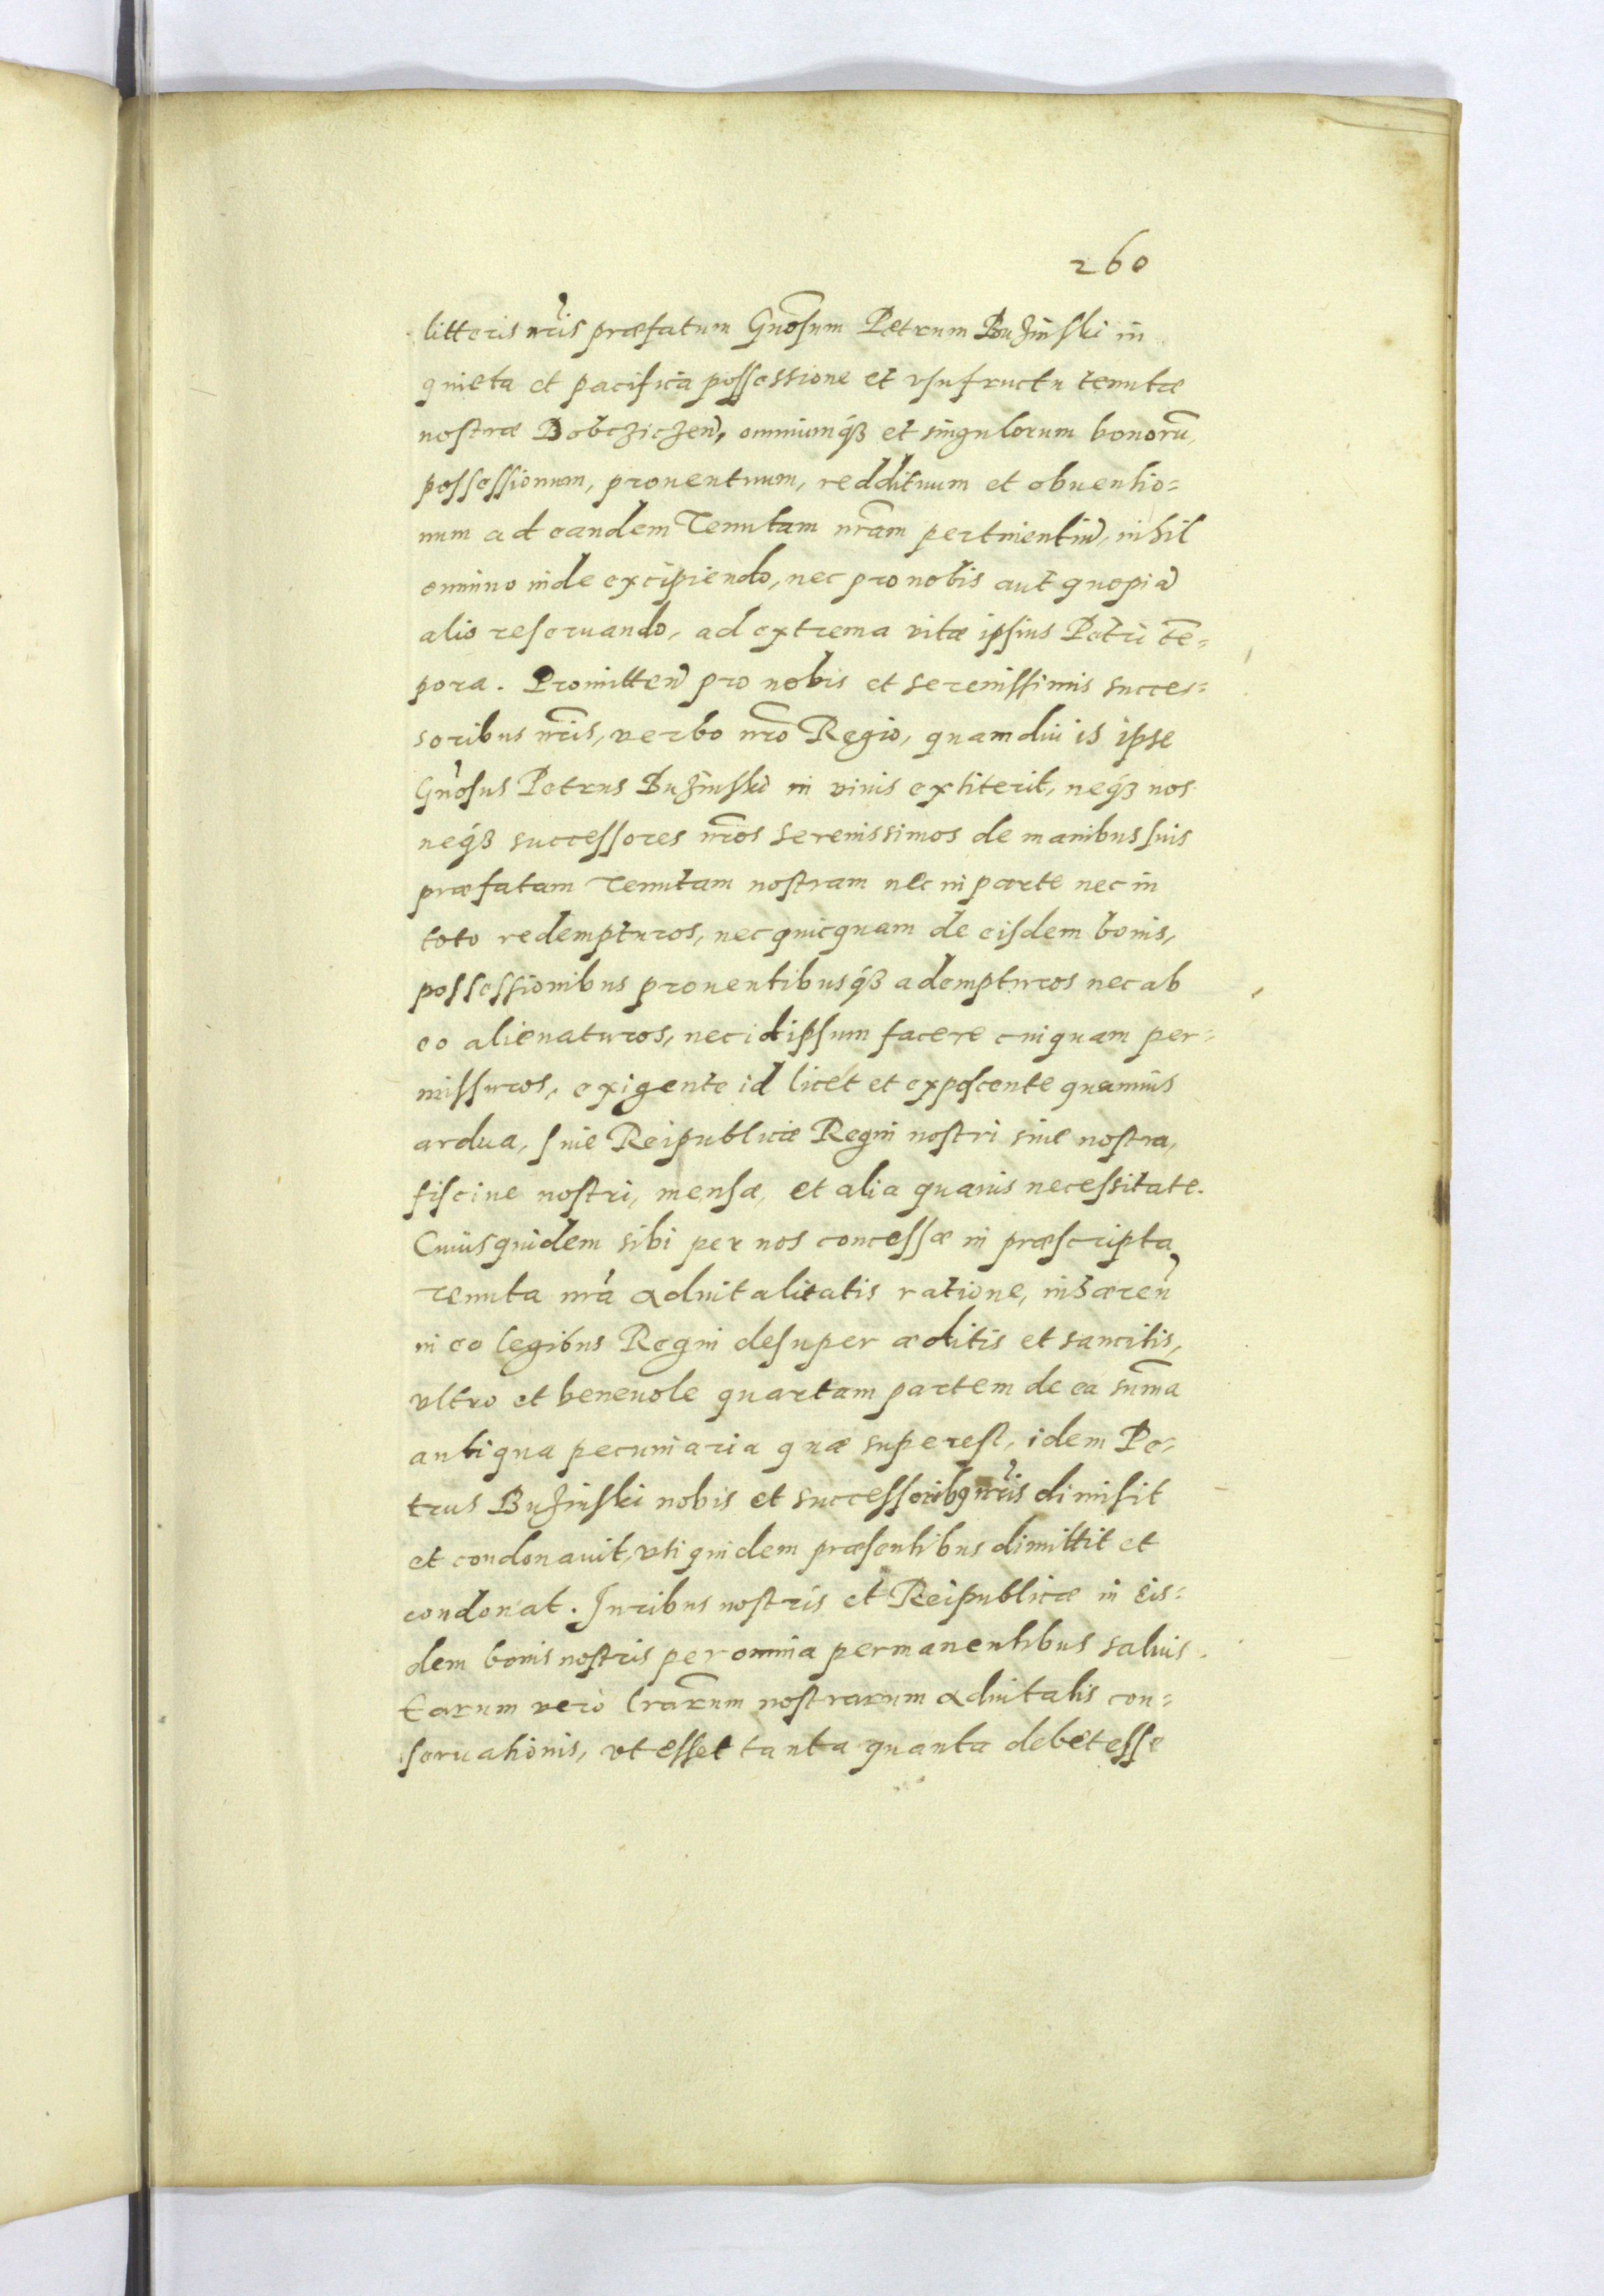 260
litteris nr̃is præfatum Gnõsum Petrum Bużinski in
quieta et pacifica possessione et vsufructu tenutæ
nostræ Dobcziczeñ, omniumq́ꝫ et singulorum bonorũ,
possessionum, prouentuum, reddituum et obuentio=
num ad eandem Tenutam nr̃am pertinentiũ, nihil
omnino inde excipiendo, nec pro nobis aut quopiã
alio reseruando, ad extrema vitæ ipsius Petri tẽ=
pora. Promitteñ pro nobis et serenissimis succes=
soribus nr̃is, verbo nr̃o Regio, quamdiu is ipse
Gnõsus Petrus Bużinski in viuis extiterit, neq́ꝫ nos
neq́ꝫ successores nr̃os serenissimos de manibus suis
præfatam Tenutam nostram nec in parte nec in
toto redempturos, nec quicquam de eisdem bonis,
possessionibus prouentibusq́ꝫ adempturos nec ab
eo alienaturos, nec idipsum facere cuiquam per=
missuros, exigente id licet et exposcente quamuis
ardua, siue Reipublicæ Regni nostri siue nostra,
fisciue nostri, mensæ, et alia quauis necessitate.
Cuiusquidem sibi per nos concessæ in præscripta
tenuta nr̃a aduitalitatis ratione, inhæreñ
in eo legibus Regni desuper æditis et sancitis,
vltro et beneuole quartam partem de ea sum̃a
antiqua pecuniaria quæ superest, idem Pe=
trus Bużinski nobis et successoribꝯ nr̃is dimisit
et condonauit, vti quidem præsentibus dimittit et
condonat. Iuribus nostris et Reipublicæ in eis=
dem bonis nostris per omnia permanentibus saluis.
Earum verò lrãrum nostrarum aduitalis con=
seruationis, vt esset tanta quanta debet esse